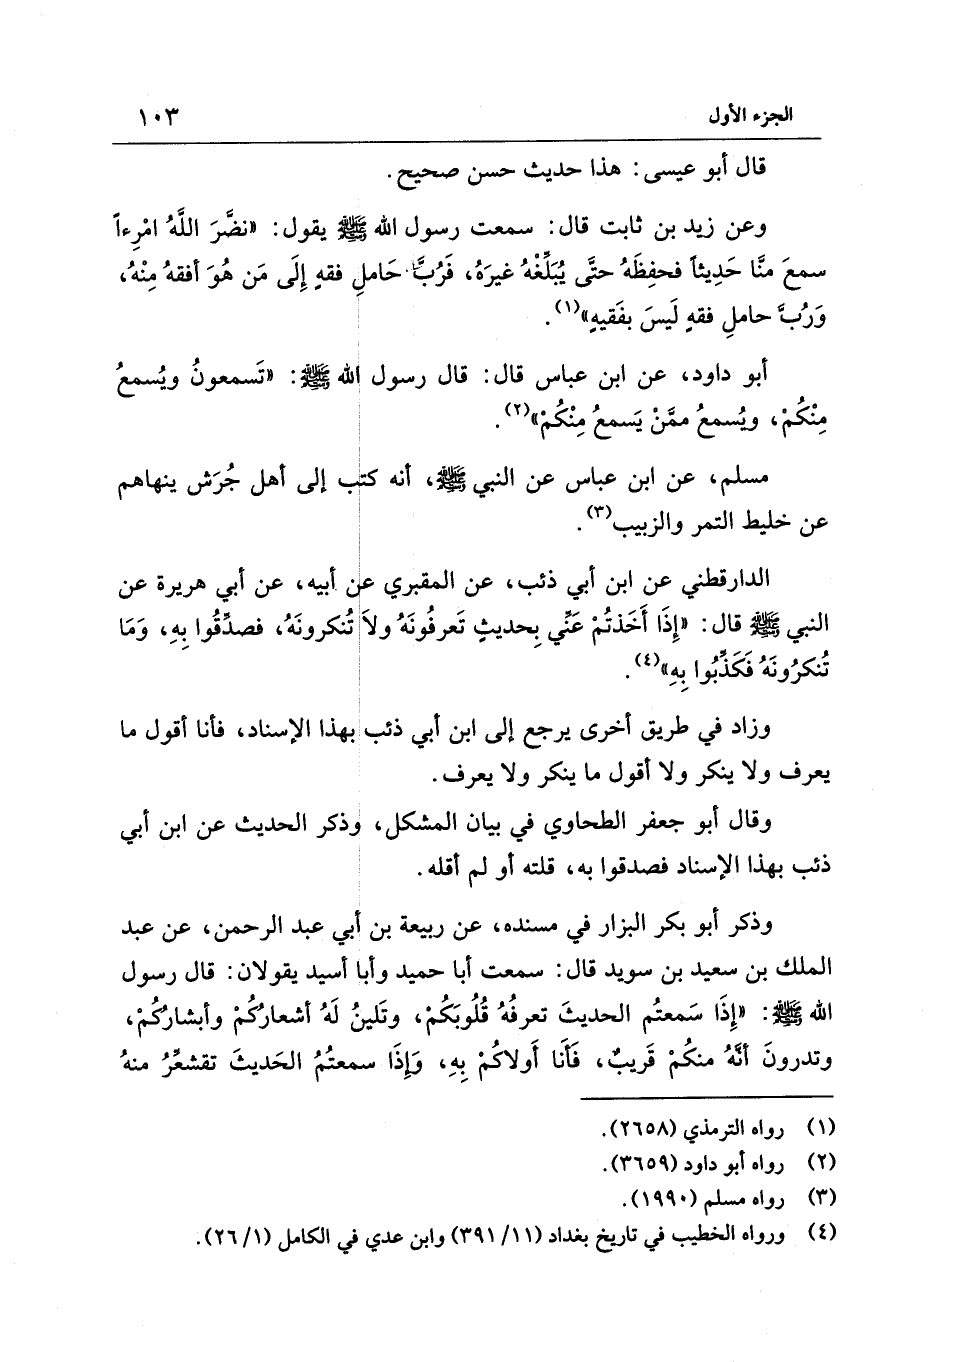 الجزء الأول
١٠٣
قال أبو عيسى: هذا حديث حسن صحيح.
وعن زيد بن ثابت قال: سمعت رسول الله ﷺ يقول: «نضَّرَ اللَّهُ امْرِءاً
سمعَ منَّا حَدِيثاً فحفِظَهُ حتَّى يُبَلِّغْهُ غيرَهُ، فَرُبَّ حَاملِ فقهٍ إِلَى مَن هُوَ أفقهُ مِنْهُ،
وَرُبَّ حاملِ فقهٍ لَيسَ بفَقيهٍ»(١).
أبو داود، عن ابن عباس قال: قال رسول الله ﷺ: «تَسمعونُ ويُسمعُ
مِنْكُمْ، ويُسمعُ ممَّنْ يَسمعُ مِنْكُمْ»(٢).
مسلم، عن ابن عباس عن النبي ﷺ، أنه كتب إلى أهل جُرَش ينهاهم
عن خليط التمر والزبيب(٣).
الدارقطني عن ابن أبي ذئب، عن المقبري عن أبيه، عن أبي هريرة عن
النبي ﷺ قال: «إِذَا أَخَذتُمْ عَنِّي بِحديثٍ تَعرفُونَهُ ولاَ تُنكرونَهُ، فصدِّقُوا بِهِ، وَمَا
تُنكرُونَهُ فَكَذِّبُوا بِهِ»(٤).
وزاد في طريق أخرى يرجع إلى ابن أبي ذئب بهذا الإسناد، فأنا أقول ما
يعرف ولا ينكر ولا أقول ما ينكر ولا يعرف.
وقال أبو جعفر الطحاوي في بيان المشكل، وذكر الحديث عن ابن أبي
ذئب بهذا الإسناد فصدقوا به، قلته أو لم أقله.
وذكر أبو بكر البزار في مسنده، عن ربيعة بن أبي عبد الرحمن، عن عبد
الملك بن سعيد بن سويد قال: سمعت أبا حميد وأبا أسيد يقولان: قال رسول
الله ﷺ: «إِذَا سَمعتُم الحديثَ تعرفُهُ قُلُوبَكُمْ، وتَلينُ لَهُ أشعاركُمْ وأبشاركُمْ،
وتدرونَ أنَّهُ منكُمْ قَريبٌ، فَأنَا أَولاكُمْ بِهِ، وَإِذَا سمعتُمُ الحَديثَ تقشعِّرُ منهُ
(١) رواه الترمذي (٢٦٥٨).
(٢) رواه أبو داود (٣٦٥٩).
(٣) رواه مسلم (١٩٩٠).
(٤) ورواه الخطيب في تاريخ بغداد (١١/ ٣٩١) وابن عدي في الكامل (١/ ٢٦).